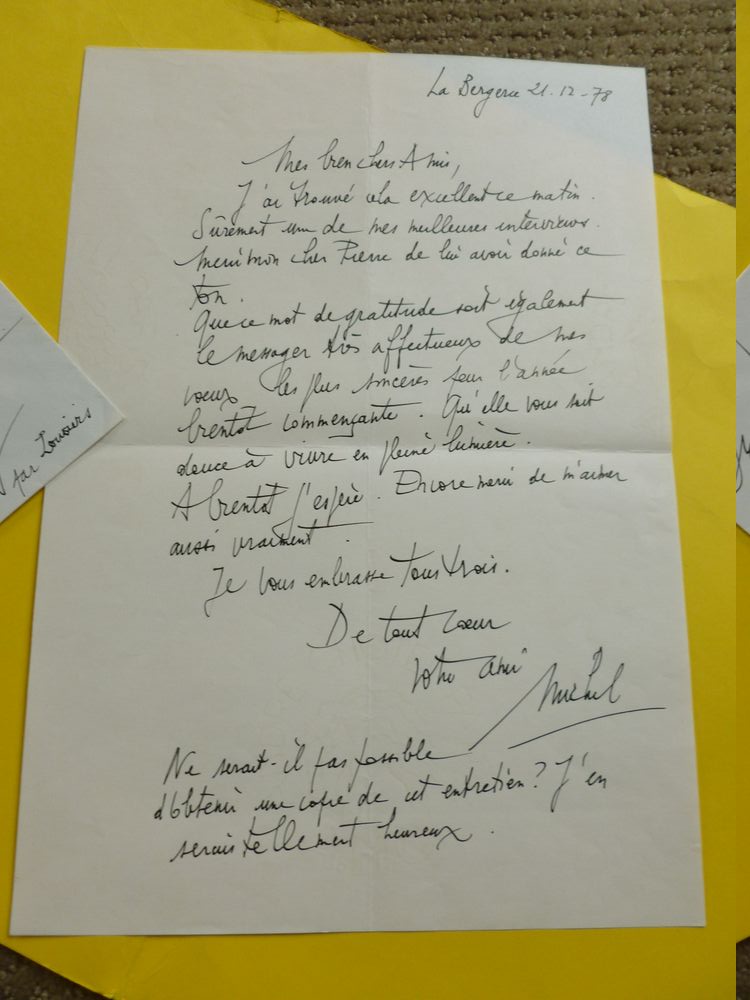 La Bergerie 21.12-78
Mes bien chers Amis,
J'ai trouvé cela excellent ce matin.
Sûrement une de mes meilleures interviews.
Merci mon cher Pierre de lui avoir donné ce
ton.
Que ce mot de gratitude soit également
le messager très affectueux de mes
voeux les plus sincères pour l'année
bientôt commençante. Qu'elle vous soit
douce à vivre en pleine lumière.
A bientôt j'espère. Encore merci de m'aimer
aussi vraiment.
Je vous embrasse tous trois.
De tout coeur
Votre ami
Michel
Ne serait-il pas possible
d'obtenir une copie de cet entretien? J'en
serais tellement heureux.